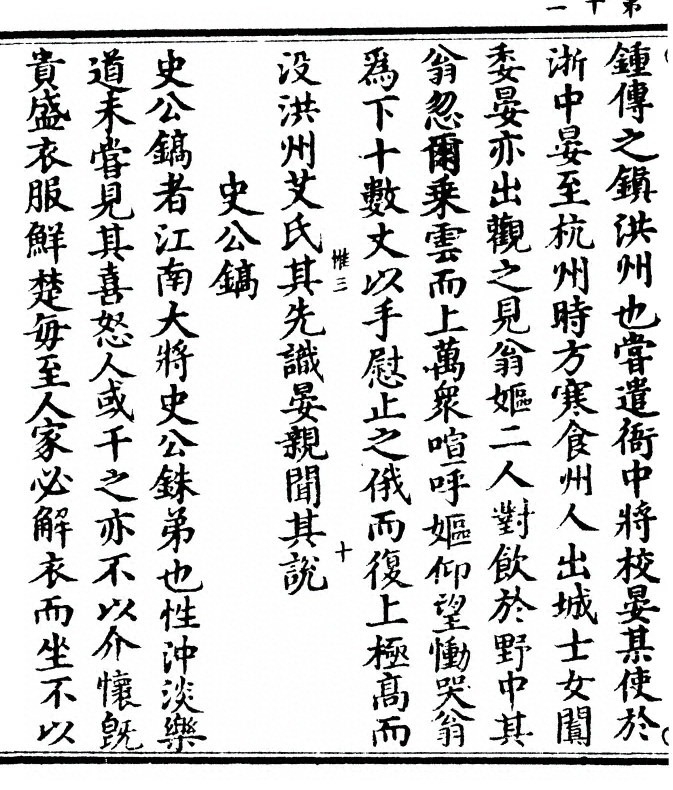 第十一
鍾傳之鎮洪州也嘗遣衙中將校晏某使於
浙中晏至杭州時方寒食州人出城士女闐
委晏亦出觀之見翁嫗二人對飲於野中其
翁忽爾乘雲而上萬衆喧呼嫗仰望慟哭翁
爲下十數丈以手慰止之俄而復上極高而
没洪州艾氏其先識晏親聞其說
史公鎬
史公鎬者江南大將史公銖弟也性沖淡樂
道未嘗見其喜怒人或干之亦不以介懷旣
貴盛衣服鮮楚每至人家必解衣而坐不以